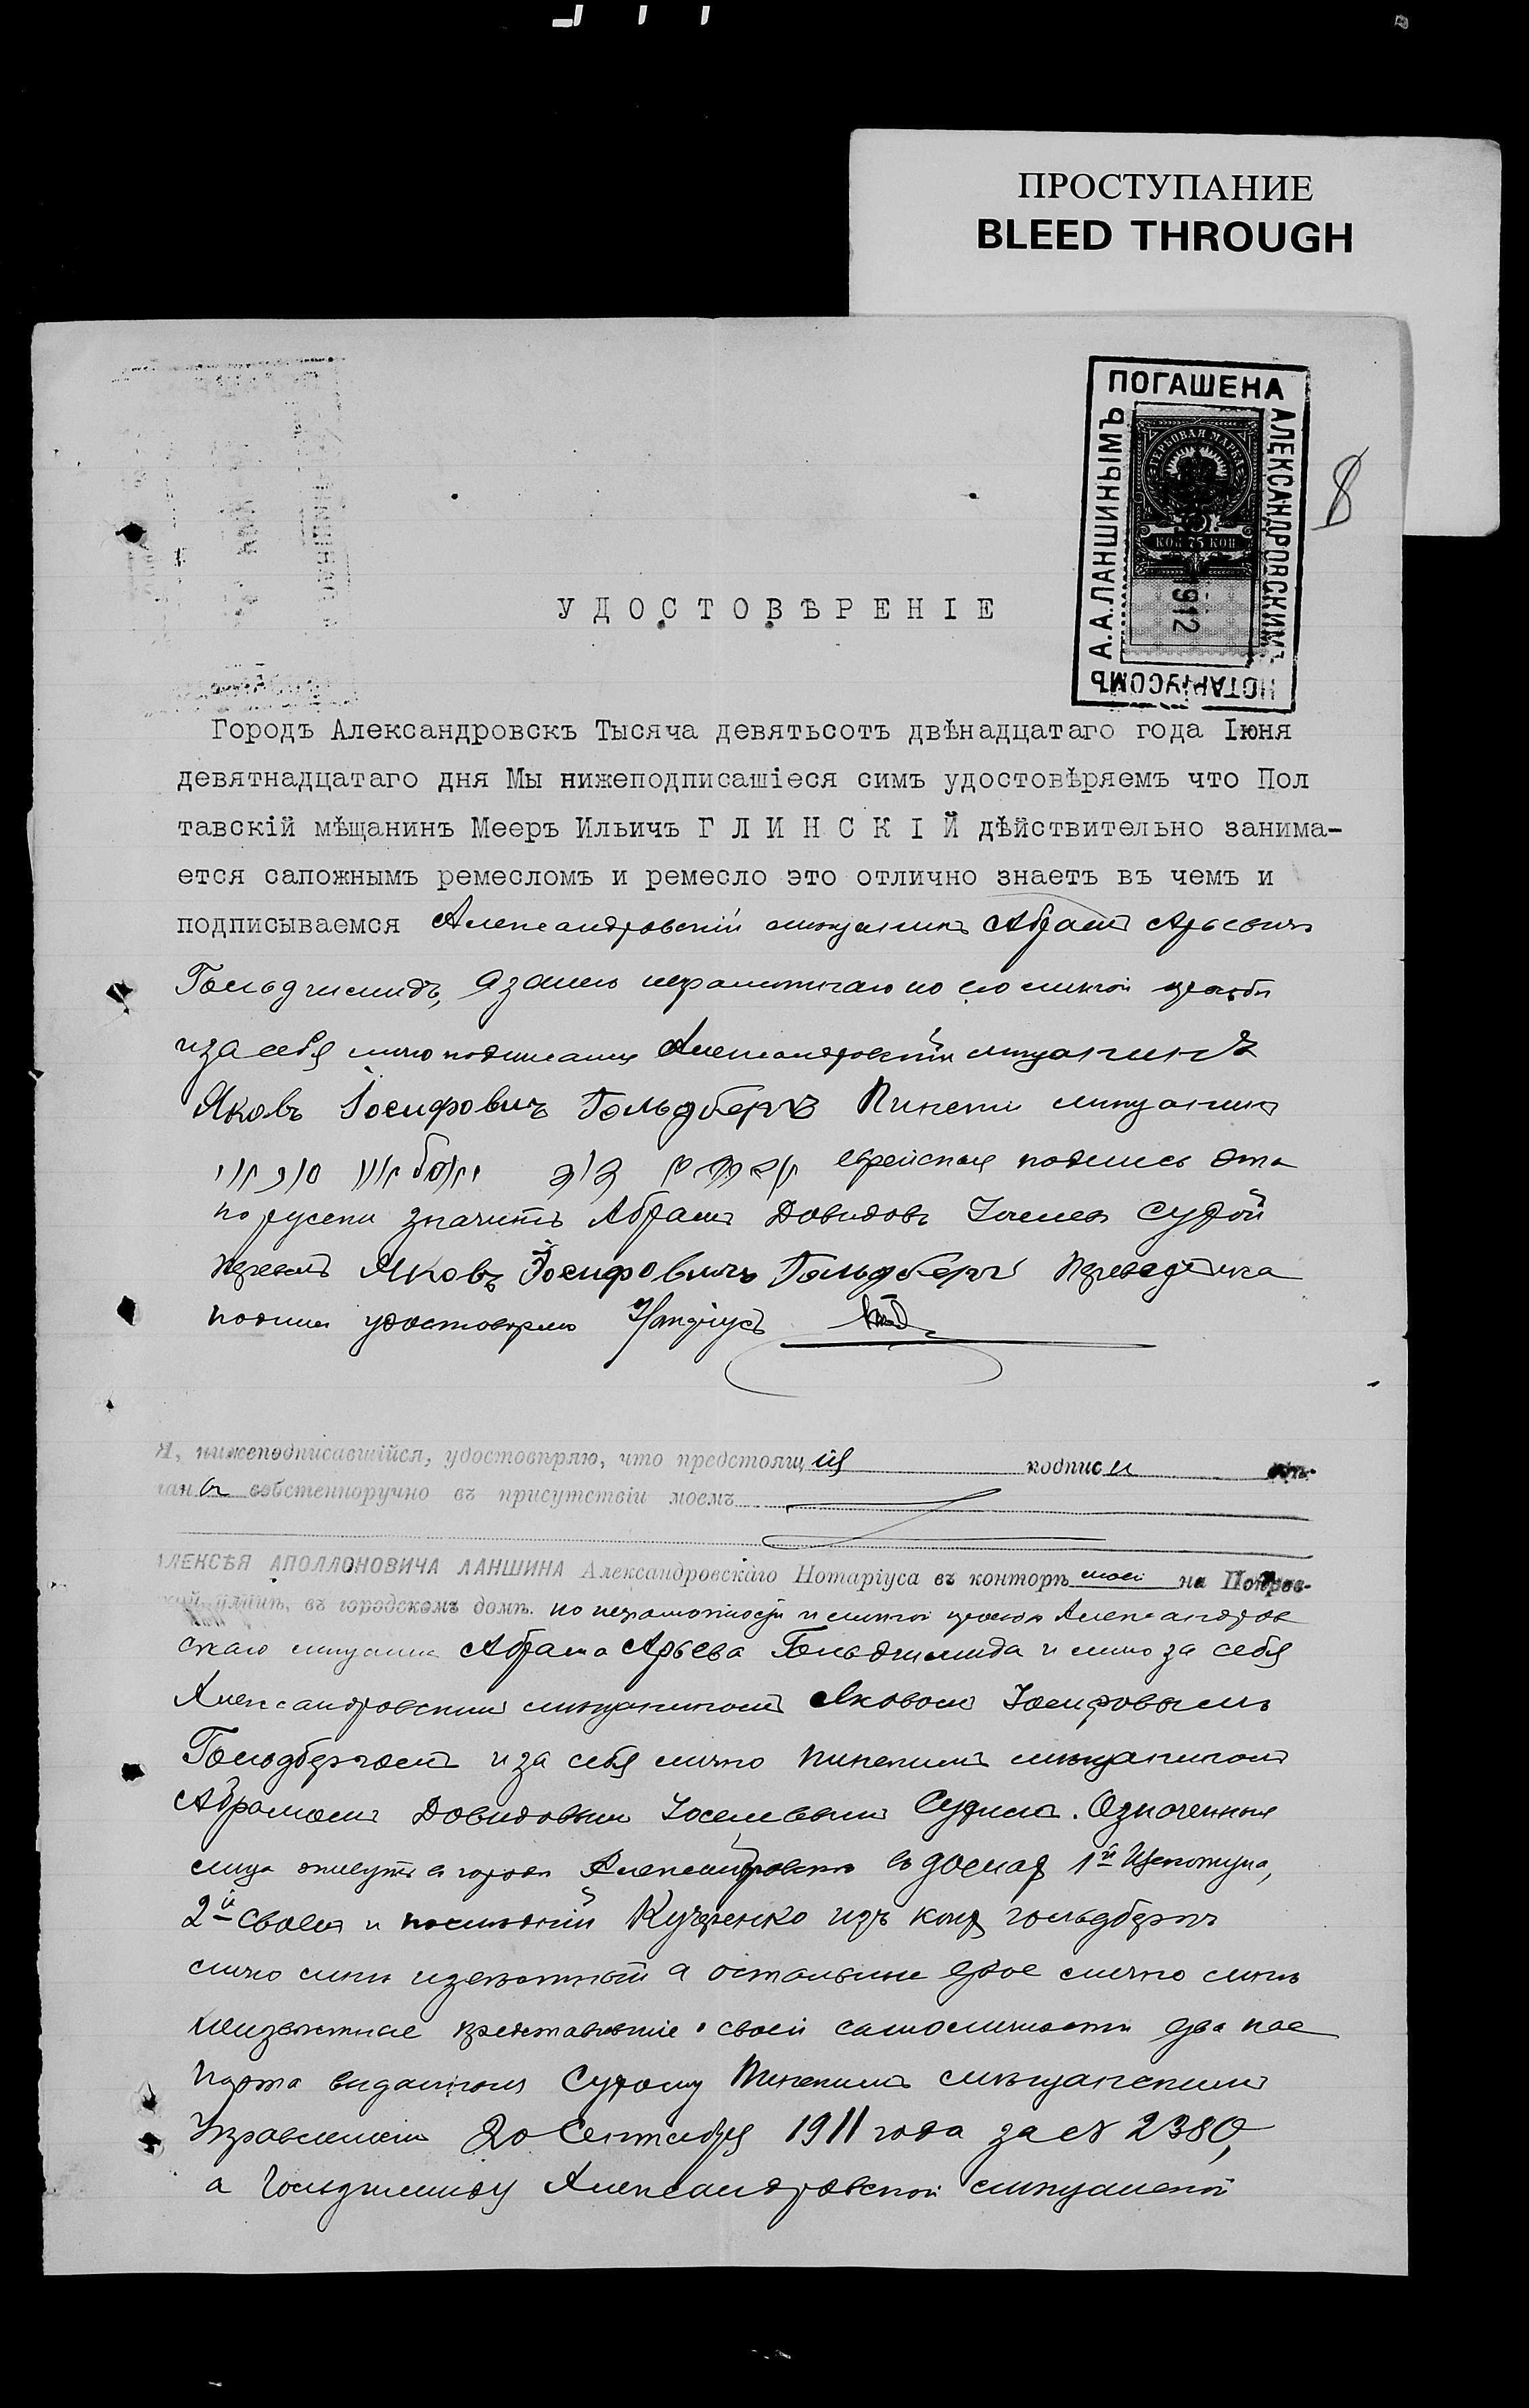 ПРОСТУПАНИЕ
BLEED THROUGH
ПОГАШЕНА
АЛЕКСАНДРОВСКИМЪ
НОТАРІУСОМЪ
А.А.ЛАНШИНЫМЪ
ГЕРБОВАЯ МАРКА
КОП 75 КОП
1912
8
УДОСТОВѢРЕНІЕ
Городъ Александровскъ Тысяча девятьсотъ двѣнадцатаго года Іюня
девятнадцатаго дня Мы нижеподписашіеся симъ удостовѣряемъ что Пол
тавскій мѣщанинъ Мееръ Ильичъ ГЛИНСКІЙ дѣйствительно занима-
ется сапожнымъ ремесломъ и ремесло это отлично знаетъ въ чемъ и
подписываемся Александровскій мѣщанинъ Абрамъ Арьевичъ
Гольдшмидъ, а за него неграмотнаго по его личной просьбѣ
и за себя лично подписался Александровскій мѣщанинъ
Яковъ Іосифовичъ Гольдбергъ Пинскій мѣщанинъ
еврейская подпись эта
по русски значитъ Абрамъ Довидовъ Іоселевъ Судой
Яковъ Іосифовичъ Гольдбергъ
подпись удостовѣряю Нотаріусъ
Я, нижеподписавшійся, удостовѣряю, что предстоящія подписи
собственноручно въ присутствіи моемъ
АЛЕКСѢЯ АПОЛЛОНОВИЧА ЛАНШИНА Александровскаго Нотаріуса въ конторѣ моей на Покров-
ской улицѣ, въ городскомъ домѣ. по неграмотности и личной просьбѣ Александров
скаго мѣщанина Абрама Арьева Гольдшмида и лично за себя
Александровскимъ мѣщаниномъ Яковомъ Іосифовымъ
Гольдбергомъ и за себя лично Пинскимъ мѣщаниномъ
Абрамомъ Довидовымъ Іоселевымъ Означенныя
лица живутъ въ городѣ Александровскѣ въ домахъ 1й
2й своемъ и послѣдній Кучеренко изъ коихъ Гольдбергъ
лично мнѣ извѣстный а остальные двое лично мнѣ
неизвѣстные представившіе о своей самоличности два пас
порта выданные Судому Пинскимъ мѣщанскимъ
Управленіемъ 20 Сентября 1911 года за № 2380,
а Гольдшмиду Александровской мѣщанской